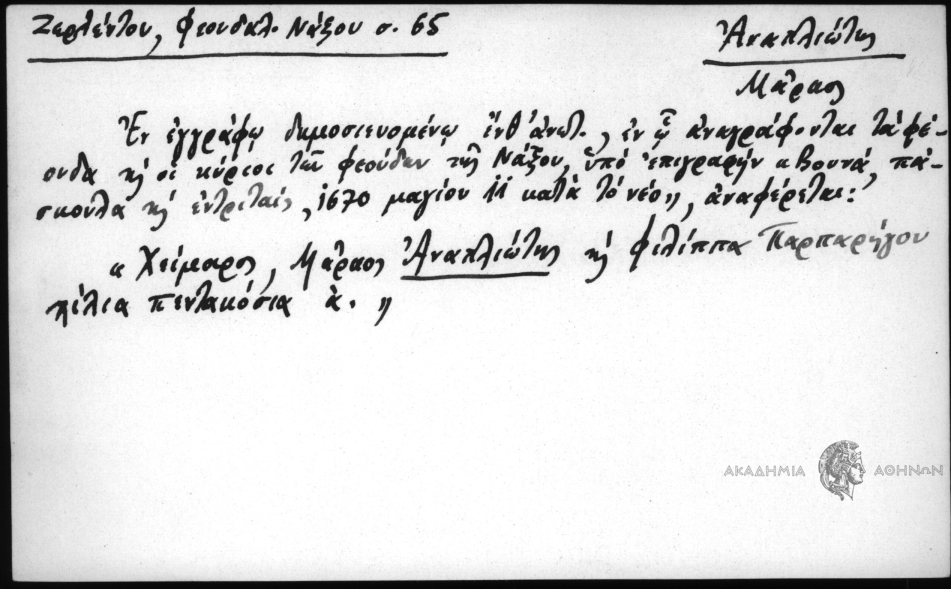 Ζερλέντου, Φεουδαλ. Νάξου σ. 65
Ἀναπλιώτης
Μᾶρκος
Ἐν ἐγγράφῳ δημοσιευομένῳ ἐνθ' ἀνωτ., ἐν ᾧ ἀναγράφονται τὰ φέ-
ουδα κὴ οἱ κύριοι τῶν φεούδων τῆς Νάξου, ὑπὸ ἐπιγραφὴν «Βουνά, πά-
σκουλα κὴ ἐντριταίς, 1670 μαγίου 11 κατὰ τὸ νέο», ἀναφέρεται:
« Χείμαρος, Μᾶρκος Ἀναπλιώτης κὴ Φιλίππα Παρπαρήγου
χίλια πεντακόσια ἀ. »
ΑΚΑΔΗΜΙΑ ΑΘΗΝΩΝ